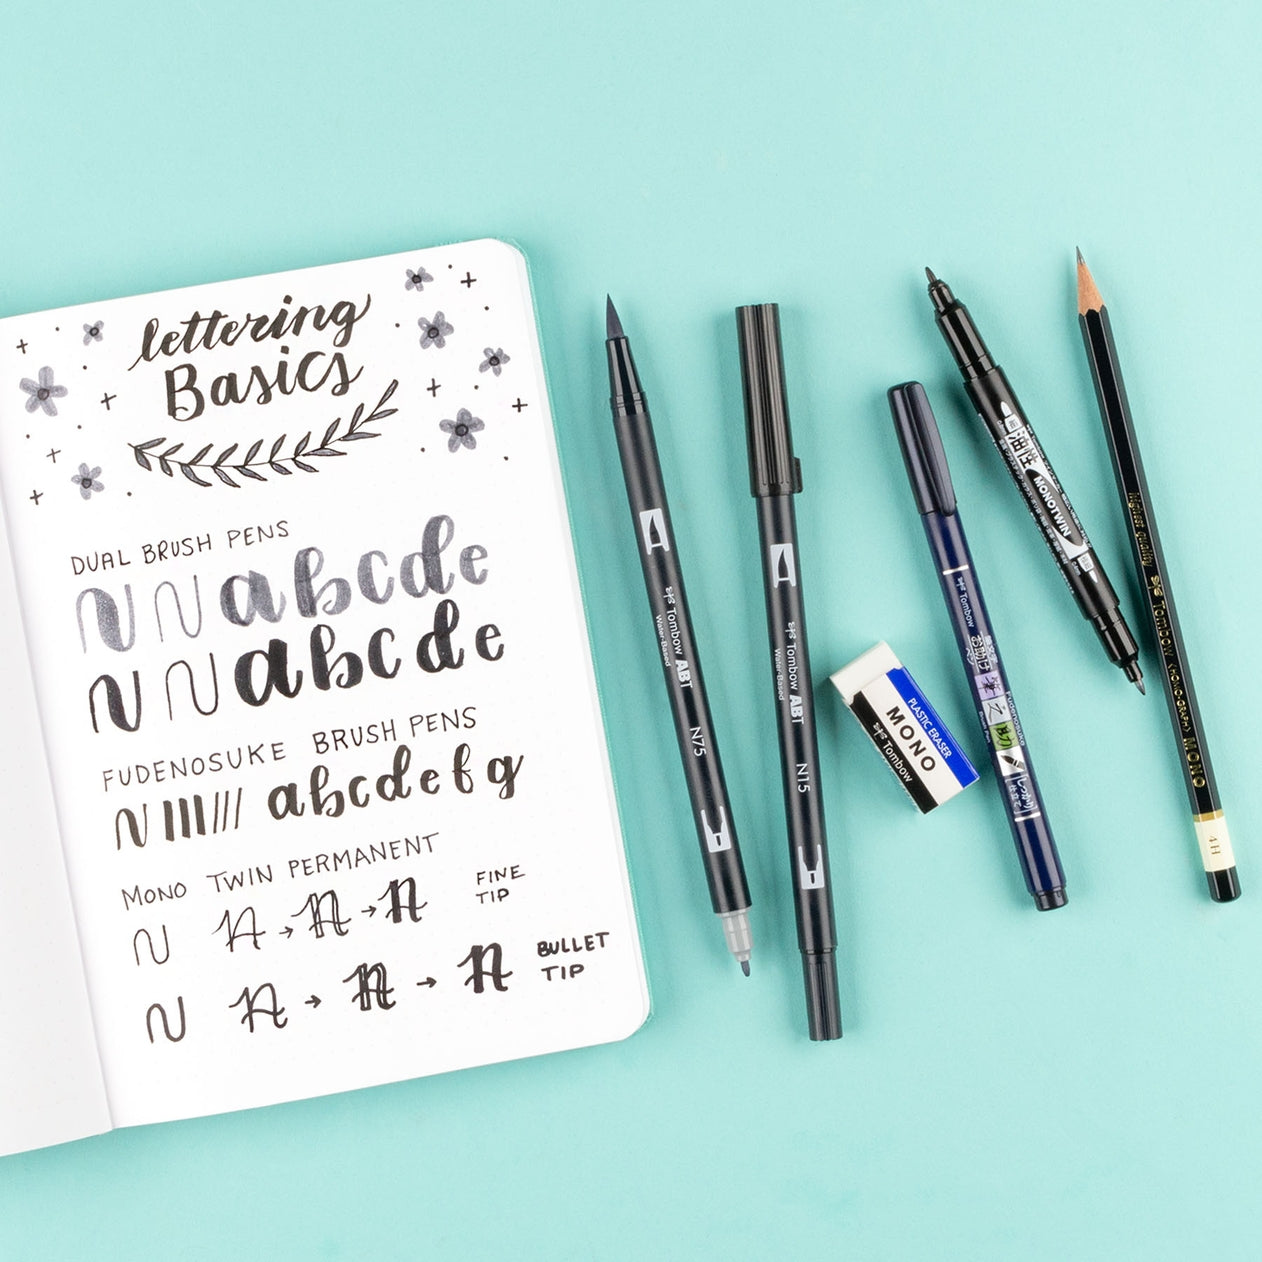 lettering
Basics
DUAL BRUSH PENS
N N abcde
N N abcde
FUDENOSUKE BRUSH PENS
N abcdefg
MONO TWIN PERMANENT
N A → A → A FINE TIP
N A → A → A BULLET TIP
Tombow ABT
Water-Based
N75
Tombow ABT
Water-Based
N15
PLASTIC ERASER
MONO
Tombow
Tombow
筆之助
Fudenosuke
しっかり
仕立て
油性
MONOTWIN
Highest quality
Tombow <HOMO-GRAPH> MONO
4H